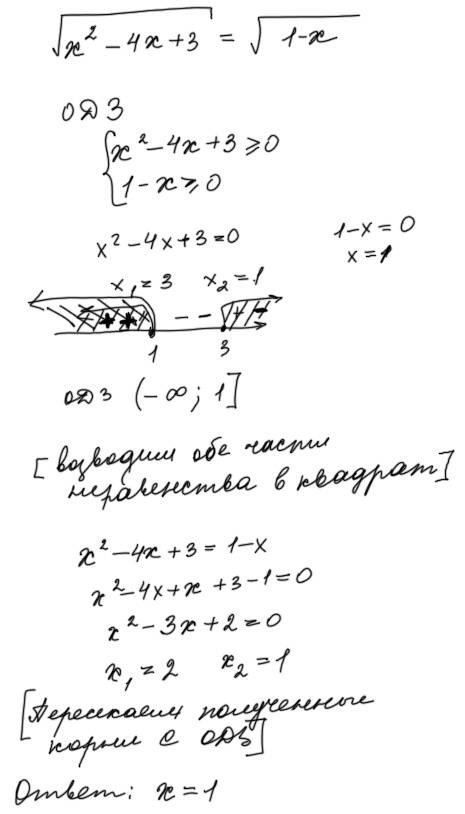 √(x² - 4x + 3) = √(1-x)
ОДЗ
{x² - 4x + 3 ≥ 0
1 - x ≥ 0
x² - 4x + 3 = 0
1 - x = 0
x₁ = 3 x₂ = 1
x = 1
+ + - - + +
1 3
ОДЗ (-∞; 1]
[возводим обе части
неравенства в квадрат]
x² - 4x + 3 = 1 - x
x² - 4x + x + 3 - 1 = 0
x² - 3x + 2 = 0
x₁ = 2 x₂ = 1
[Пересекаем полученные
корни с ОДЗ]
Ответ: x = 1